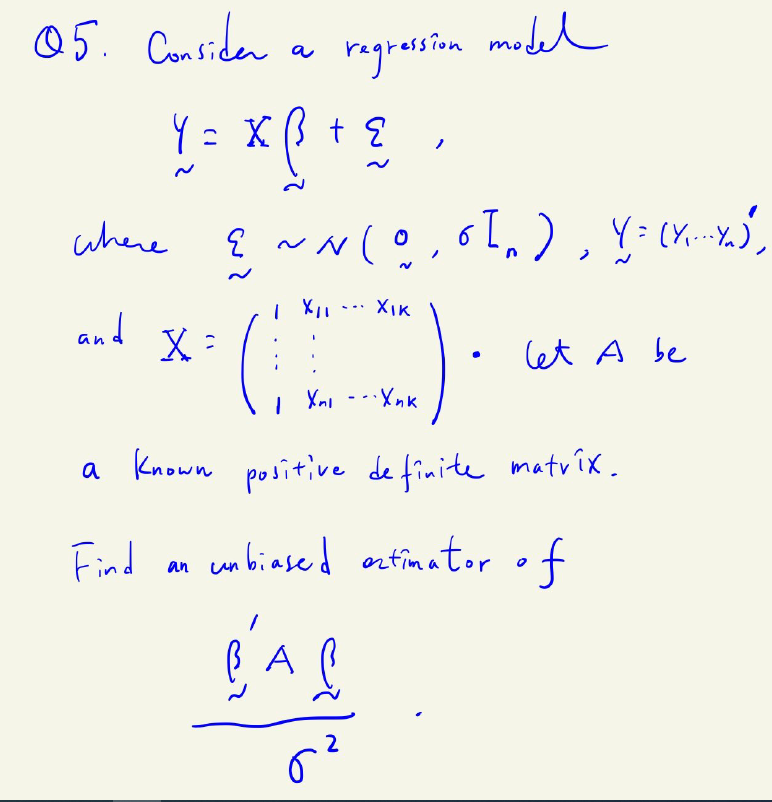 Q5. Consider a regression model
Y = Xβ + ε ,
where ε ~ N(0, σIn), Y = (Y1...Yn)',
and X = ( 1 X11 ... X1K
⋮ ⋮
1 Xn1 ... XnK ) . Let A be
a known positive definite matrix.
Find an unbiased estimator of
β'Aβ
σ² .